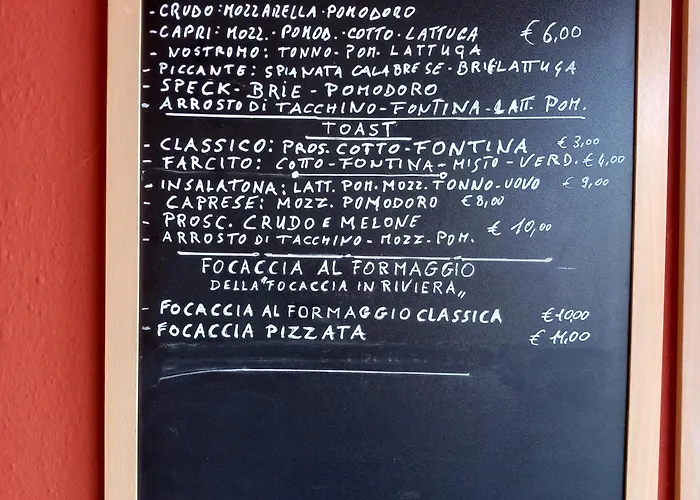 - CRUDO: MOZZARELLA·POMODORO
- CAPRI: MOZZ.· POMOD.· COTTO· LATTUGA € 6,00
- NOSTROMO: TONNO- POM. LATTUGA
- PICCANTE: SPIANATA CALABRESE- BRIE LATTUGA
- SPECK- BRIE- POMODORO
- ARROSTO DI TACCHINO-FONTINA-LATT. POM.
TOAST
- CLASSICO: PROS. COTTO-FONTINA € 3,00
- FARCITO: COTTO-FONTINA-MISTO-VERD. € 4,00
- INSALATONA: LATT. POM. MOZZ. TONNO-UOVO € 9,00
- CAPRESE: MOZZ. POMODORO € 8,00
- PROSC. CRUDO E MELONE € 10,00
- ARROSTO DI TACCHINO- MOZZ- POM.
FOCACCIA AL FORMAGGIO
DELLA "FOCACCIA IN RIVIERA„
- FOCACCIA AL FORMAGGIO CLASSICA € 10,00
- FOCACCIA PIZZATA € 11,00